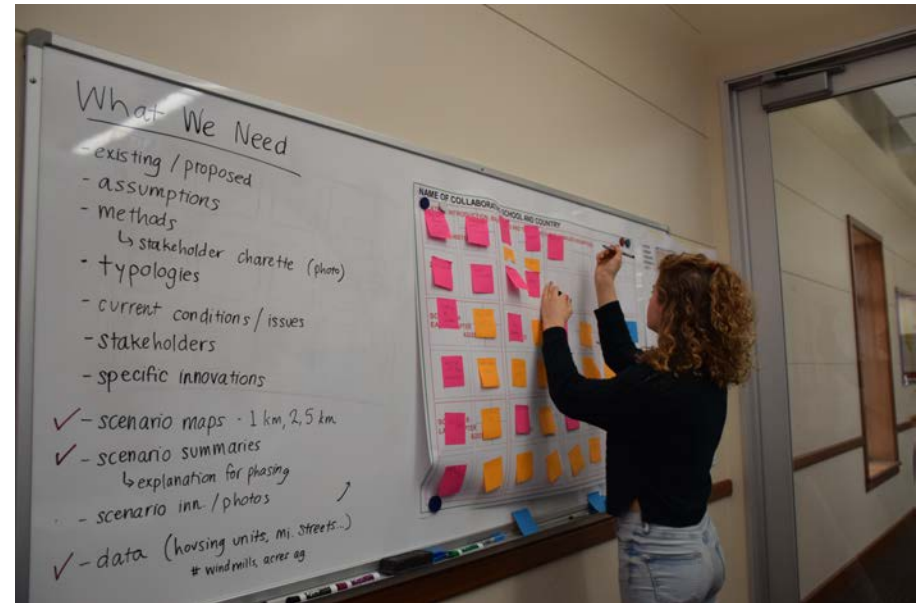 What We Need
- existing / proposed
- assumptions
- methods
↳ stakeholder charette (photo)
- typologies
- current conditions / issues
- stakeholders
- specific innovations
✓ - scenario maps - 1 km, 2, 5 km
✓ - scenario summaries
↳ explanation for phasing
- scenario inn. / photos
✓ - data (housing units, mi. streets...)
# windmills, acres ag
NAME OF COLLABORATI SCHOOL AND COUNTRY